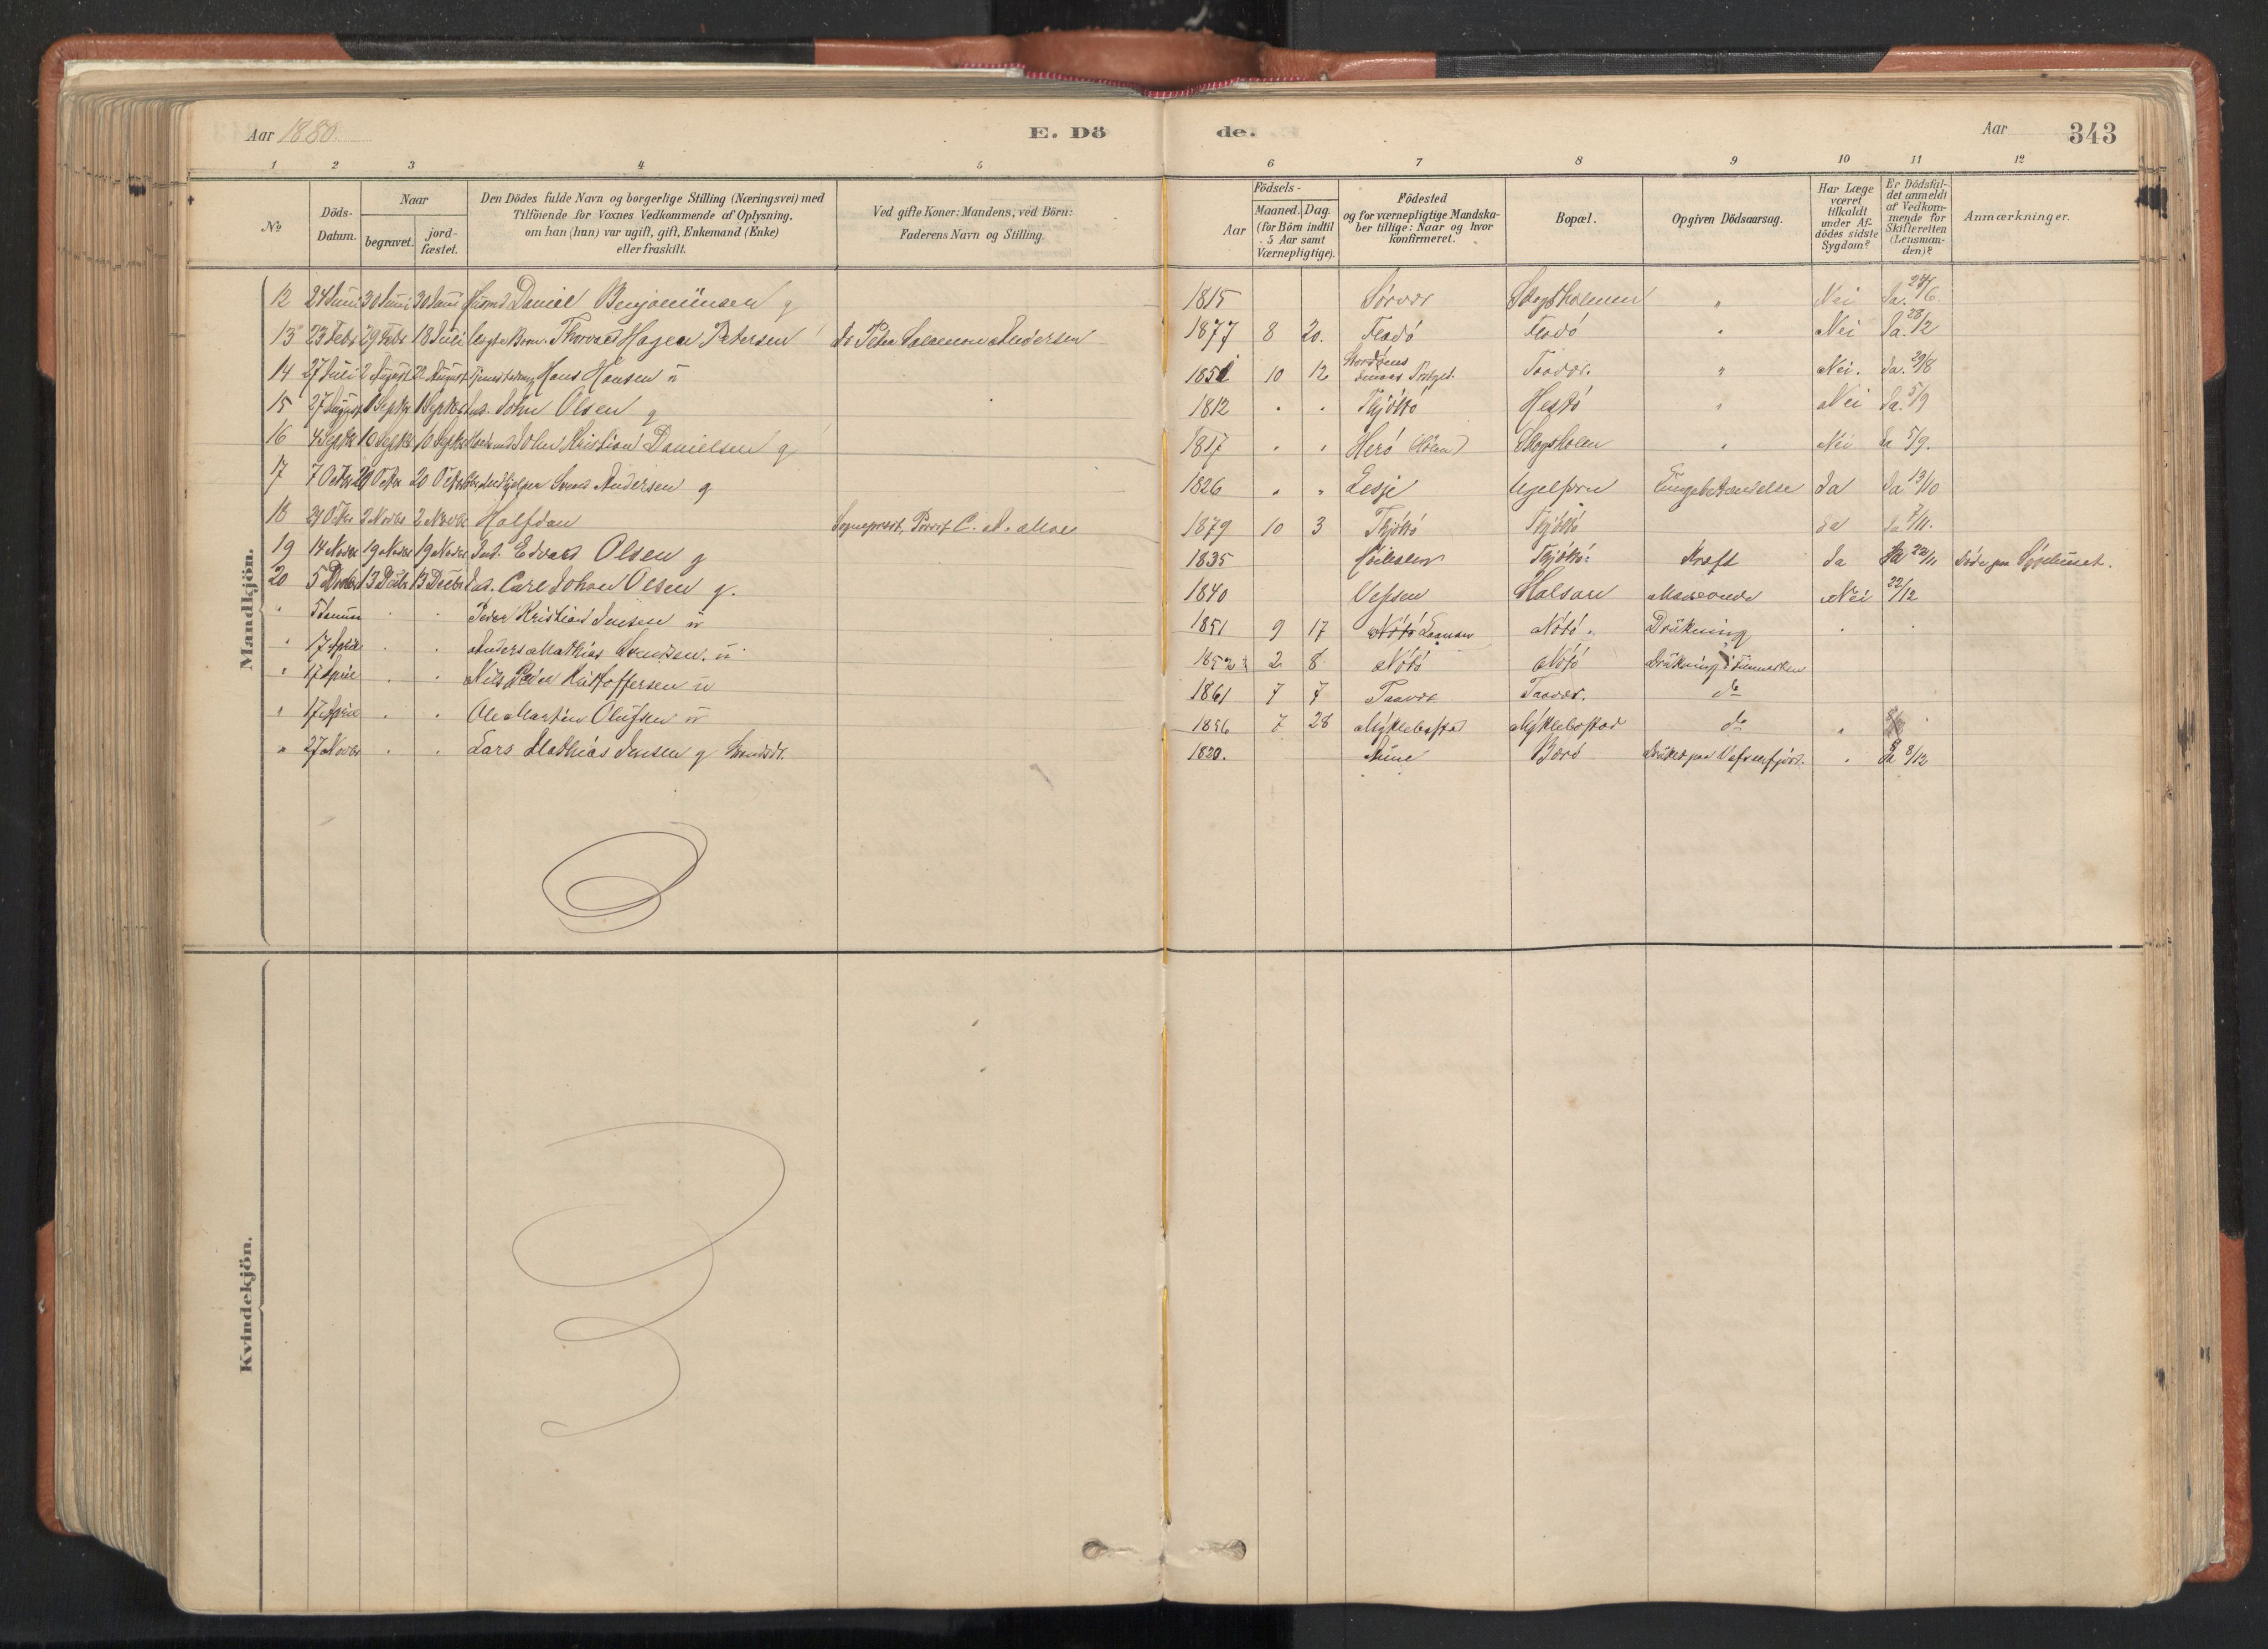 Aar 1880. E. Dö
de. Aar 343
1 2 3 4 5 6 7 8 9 10 11 12
№
Döds-Datum.
Naar
begravet.
jord-fæstet.
Den Dödes fulde Navn og borgerlige Stilling (Næringsvei) med
Tilföiende for Voxnes Vedkommende af Oplysning,
om han (hun) var ugift, gift, Enkemand (Enke)
eller fraskilt.
Ved gifte Koner: Mandens, ved Börn:
Faderens Navn og Stilling.
Födsels-
Aar
Maaned. Dag.
(for Börn indtil
5 Aar samt
Værnepligtige).
Födested
og for værnepligtige Mandska-
ber tillige: Naar og hvor
konfirmeret.
Bopæl.
Opgiven Dödsaarsag.
Har Læge
været
tilkaldt
under Af-
dödes sidste
Sygdom?
Er Dödsfal-
det anmeldt
af Vedkom-
mende for
Skifteretten
(Lensman-
den)?
Anmærkninger.
Mandkjön.
12 24 Juni 30 Juni 30 Juni Husmd Daniel Benjaminsen g 1815 Sörvær Skogsholmen " Nei Ja. 24/6
13 23 Febr 29 Febr 18 Juli Thorvald Hagen Petersen Petersen Andersen 1877 8 20. Flodö Flodö " Nei Ja. 28/2
14 27 Juli 2 August 22 August Hans Hansen u 1851 10 12 Taavær. " Nei. Ja. 29/8
15 27 August 1 Septbr 1 Septbr Ins. John Olsen g 1812 " " Thjöttö Hestö " Nei Ja. 5/9
16 4 Septbr 10 Septbr 10 Septbr John Kristian Danielsen g 1817 " " Herö Skogsholm " Nei Ja 5/9.
17 7 Octbr 20 Octbr 20 Octbr Svend Andersen g 1826 " " Lesje Ugelforu Lungebetændelse Ja Ja 13/10
18 29 Octbr 2 Novbr 2 Novbr Halfdan Sognepræst, Provst C. A. Moe 1879 10 3 Thjöttö Thjöttö Ja Ja 2/11.
19 14 Novbr 19 Novbr 19 Novbr Ind. Edvard Olsen g 1835 Höiholm Thjöttö: Kræft Ja Ja 22/11 Döde paa Sygehuset.
20 5 Decbr 13 Decbr 13 Decbr Ins. Carl Johan Olsen g. 1840 Vefsen Halsan Maveonde Nei 22/12
" 5 Januar " " Peder Kristian Jensen u 1851 9 17 Nötö Nötö. Drukning " "
" 17 April " " Anders Mathias u 2 8 Nötö Nötö Drukning i Finmarken
" 17 April " " Nils Peder Kristoffersen u 1861 7 7 Taavær Taavær. do
" 17 April " " Ole Martin Olufsen u 1856 7 28 Myklebostad Myklebostad do "
" 27 Novbr " " Lars Mathias Jensen g 1820. Aune Bærö Druknet paa Vefsenfjord. " Ja 8/12
Kvindekjön.